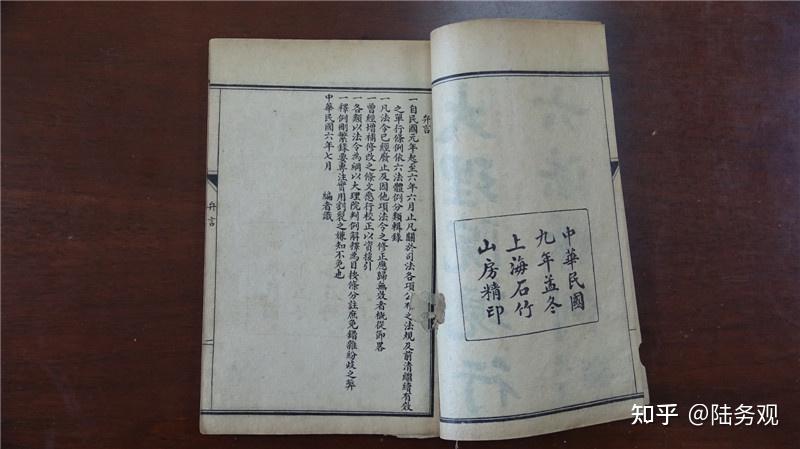 中華民國
九年孟冬
上海石竹
山房精印
弁言
一自民國元年起至六年六月止凡關於司法各項公之法規及前清繼續有效
之單行條例依六法體例分類輯錄
一凡法令已經廢止及因他項法令之修正應歸無效者概從節畧
一曾經增補修改之條文悉行校正以資援引
一各類以法令為綱以大理院判例解釋為目按條分註庶免錯雜紛歧之弊
一釋例刪繁錄要專注實用割裂之嫌知不免也
中華民國六年七月 編者識
弁言
知乎 @陆务观